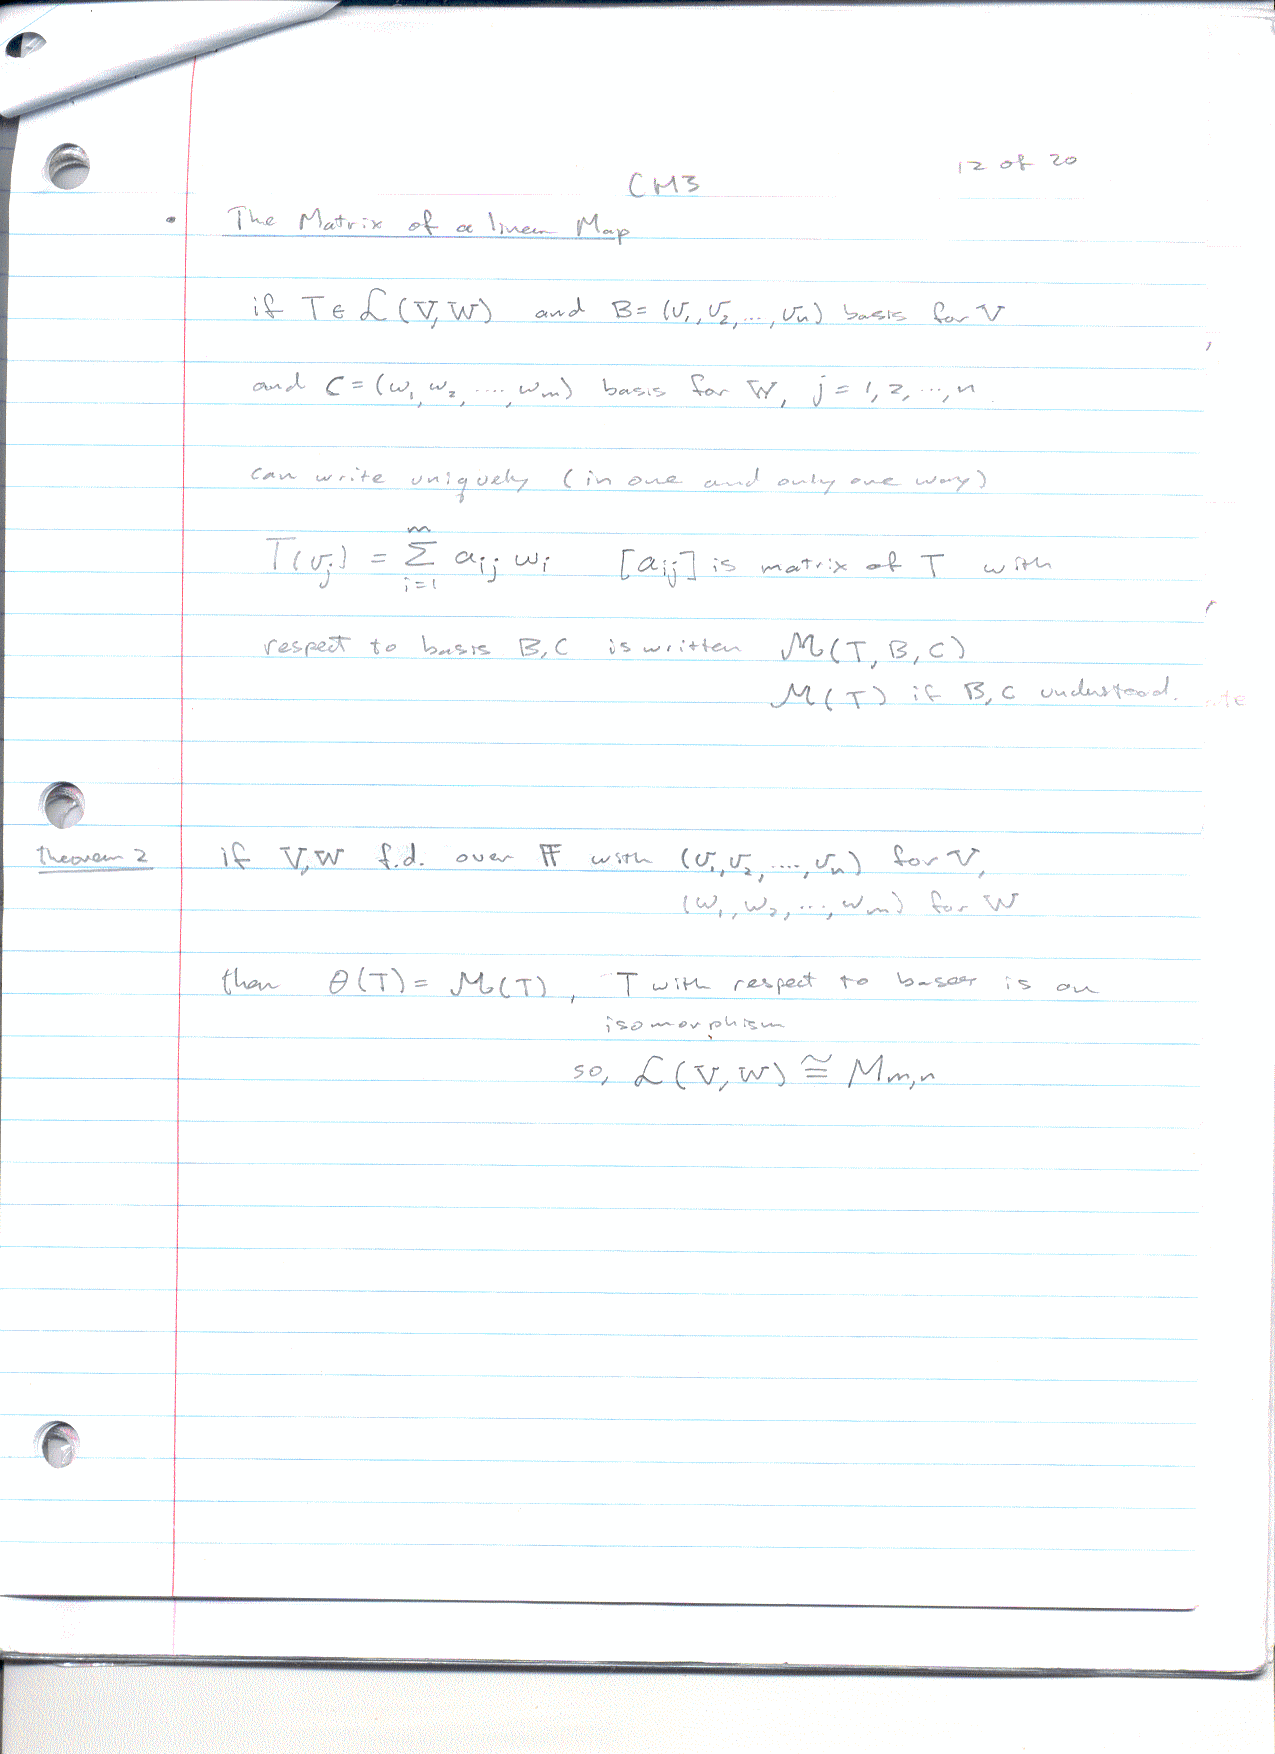 12 of 20
CM3
• The Matrix of a linear Map
if T ∈ ℒ(V,W) and B = (v₁, v₂, ..., vₙ) basis for V
and C = (w₁, w₂, ...., wₘ) basis for W, j = 1, 2, ..., n
can write uniquely (in one and only one way)
T(vⱼ) = Σᵢ₌₁ᵐ aᵢⱼ wᵢ [aᵢⱼ] is matrix of T with
respect to basis B, C is written ℳ(T, B, C)
ℳ(T) if B, C understood.
theorem 2 if V, W f.d. over 𝔽 with (v₁, v₂, ...., vₙ) for V,
(w₁, w₂, ..., wₘ) for W
then θ(T) = ℳ(T), T with respect to bases is an
isomorphism
so, ℒ(V, W) ≅ Mₘ,ₙ